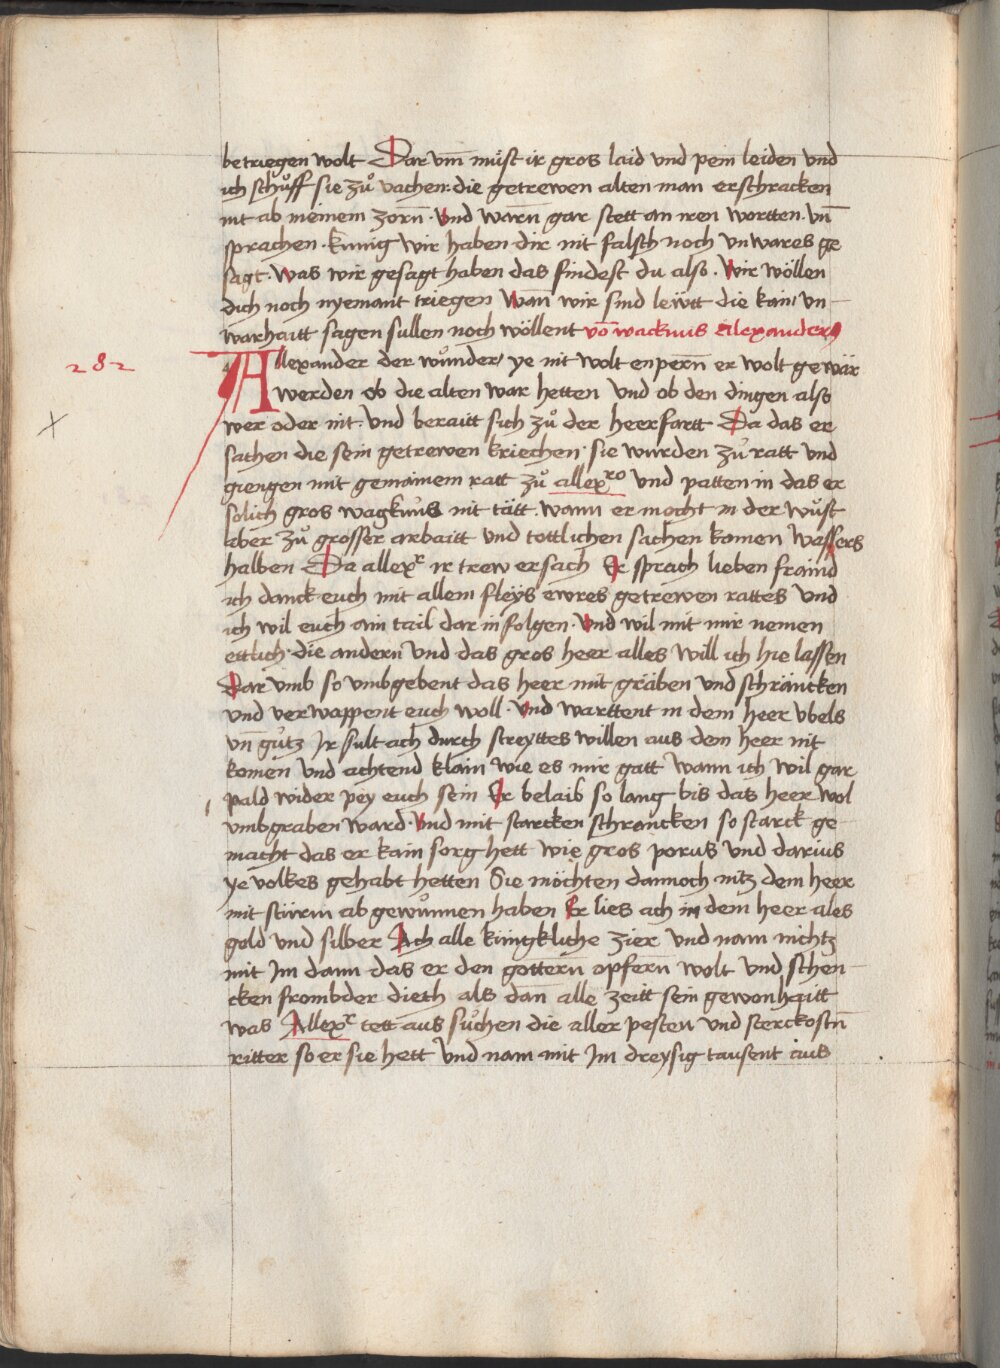 betriegen wolt Dar vm̄ muͤst ir gros laid vnd pein leiden vnd
ich schuͦff sie zuͦ vachen. die getrewen alten man erschracken
nit ab meinem zorn̄. Vnd warn̄ gar stett an iren wortten. vn̄
sprachen. kunig wir haben dir nit falsch noch vnwares ge
sagt. Was wir gesagt haben das findest du also. Wir wöllen
dich noch nyemant triegen Wan̄ wir sind lewtt die kain vn-
warhaitt sagen sullen noch wöllent võ wacknus Alexanders
282
Allexander der wuͦnder ye nit wolt enpern̄ er wolt gewär
werden ob die alten war hetten vnd ob den dingen also
wer oder nit. Vnd beraitt sich zuͦ der heerfartt Da das er
sachen die sein getrewen kriechen. sie wurden zuͦ ratt vnd
giengen mit gemainem ratt zuͦ allexʳᵒ vnd patten in das er
solich gros wagknus nit tätt. wann er mocht in der wuͤst
aber zuͦ grosser arbaitt vnd tottlichen sachen komen wassers
halben Da allexʳ ir trew ersach Er sprach lieben fraind
ich danck euch mit allem fleys ewres getrewen rattes vnd
ich wil euch ain tail dar in folgen. Vnd wil mit mir nemen
ettlich. die andern vnd das gros heer alles will ich hie lassen
Dar vmb so vmbgebent das heer mit gräben vnd schräncken
vnd verwappent euch woll. Vnd warttent in dem heer vbels
vn̄ guͦtz Ir sult ach durch streyttes willen aus dem heer nit
komen vnd achtend klain wie es mir gatt wann ich wil gar
pald wider pey euch sein Er belaib so lang bis das heer wol
vmbgraben ward. Vnd mit starcken schrancken so starck ge-
macht das er kain sorg hett wie gros porus vnd darius
ye volkes gehabt hetten Sie möchten dannoch nitz dem heer
mit stürm ab gewuͦnnen haben Er lies ach in dem heer ales
gold vnd silber Ach alle küngkliche zier vnd nam nichtz
mit Im dann das er den gottern̄ opfern̄ wolt vnd schen-
cken frombder dieth als dan̄ alle zeitt sein gewonhaitt
was Allexʳ tett aus suͦchen die aller pesten vnd sterckostn̄
ritter so er sie hett vnd nam mit Im dreysig tausent aus